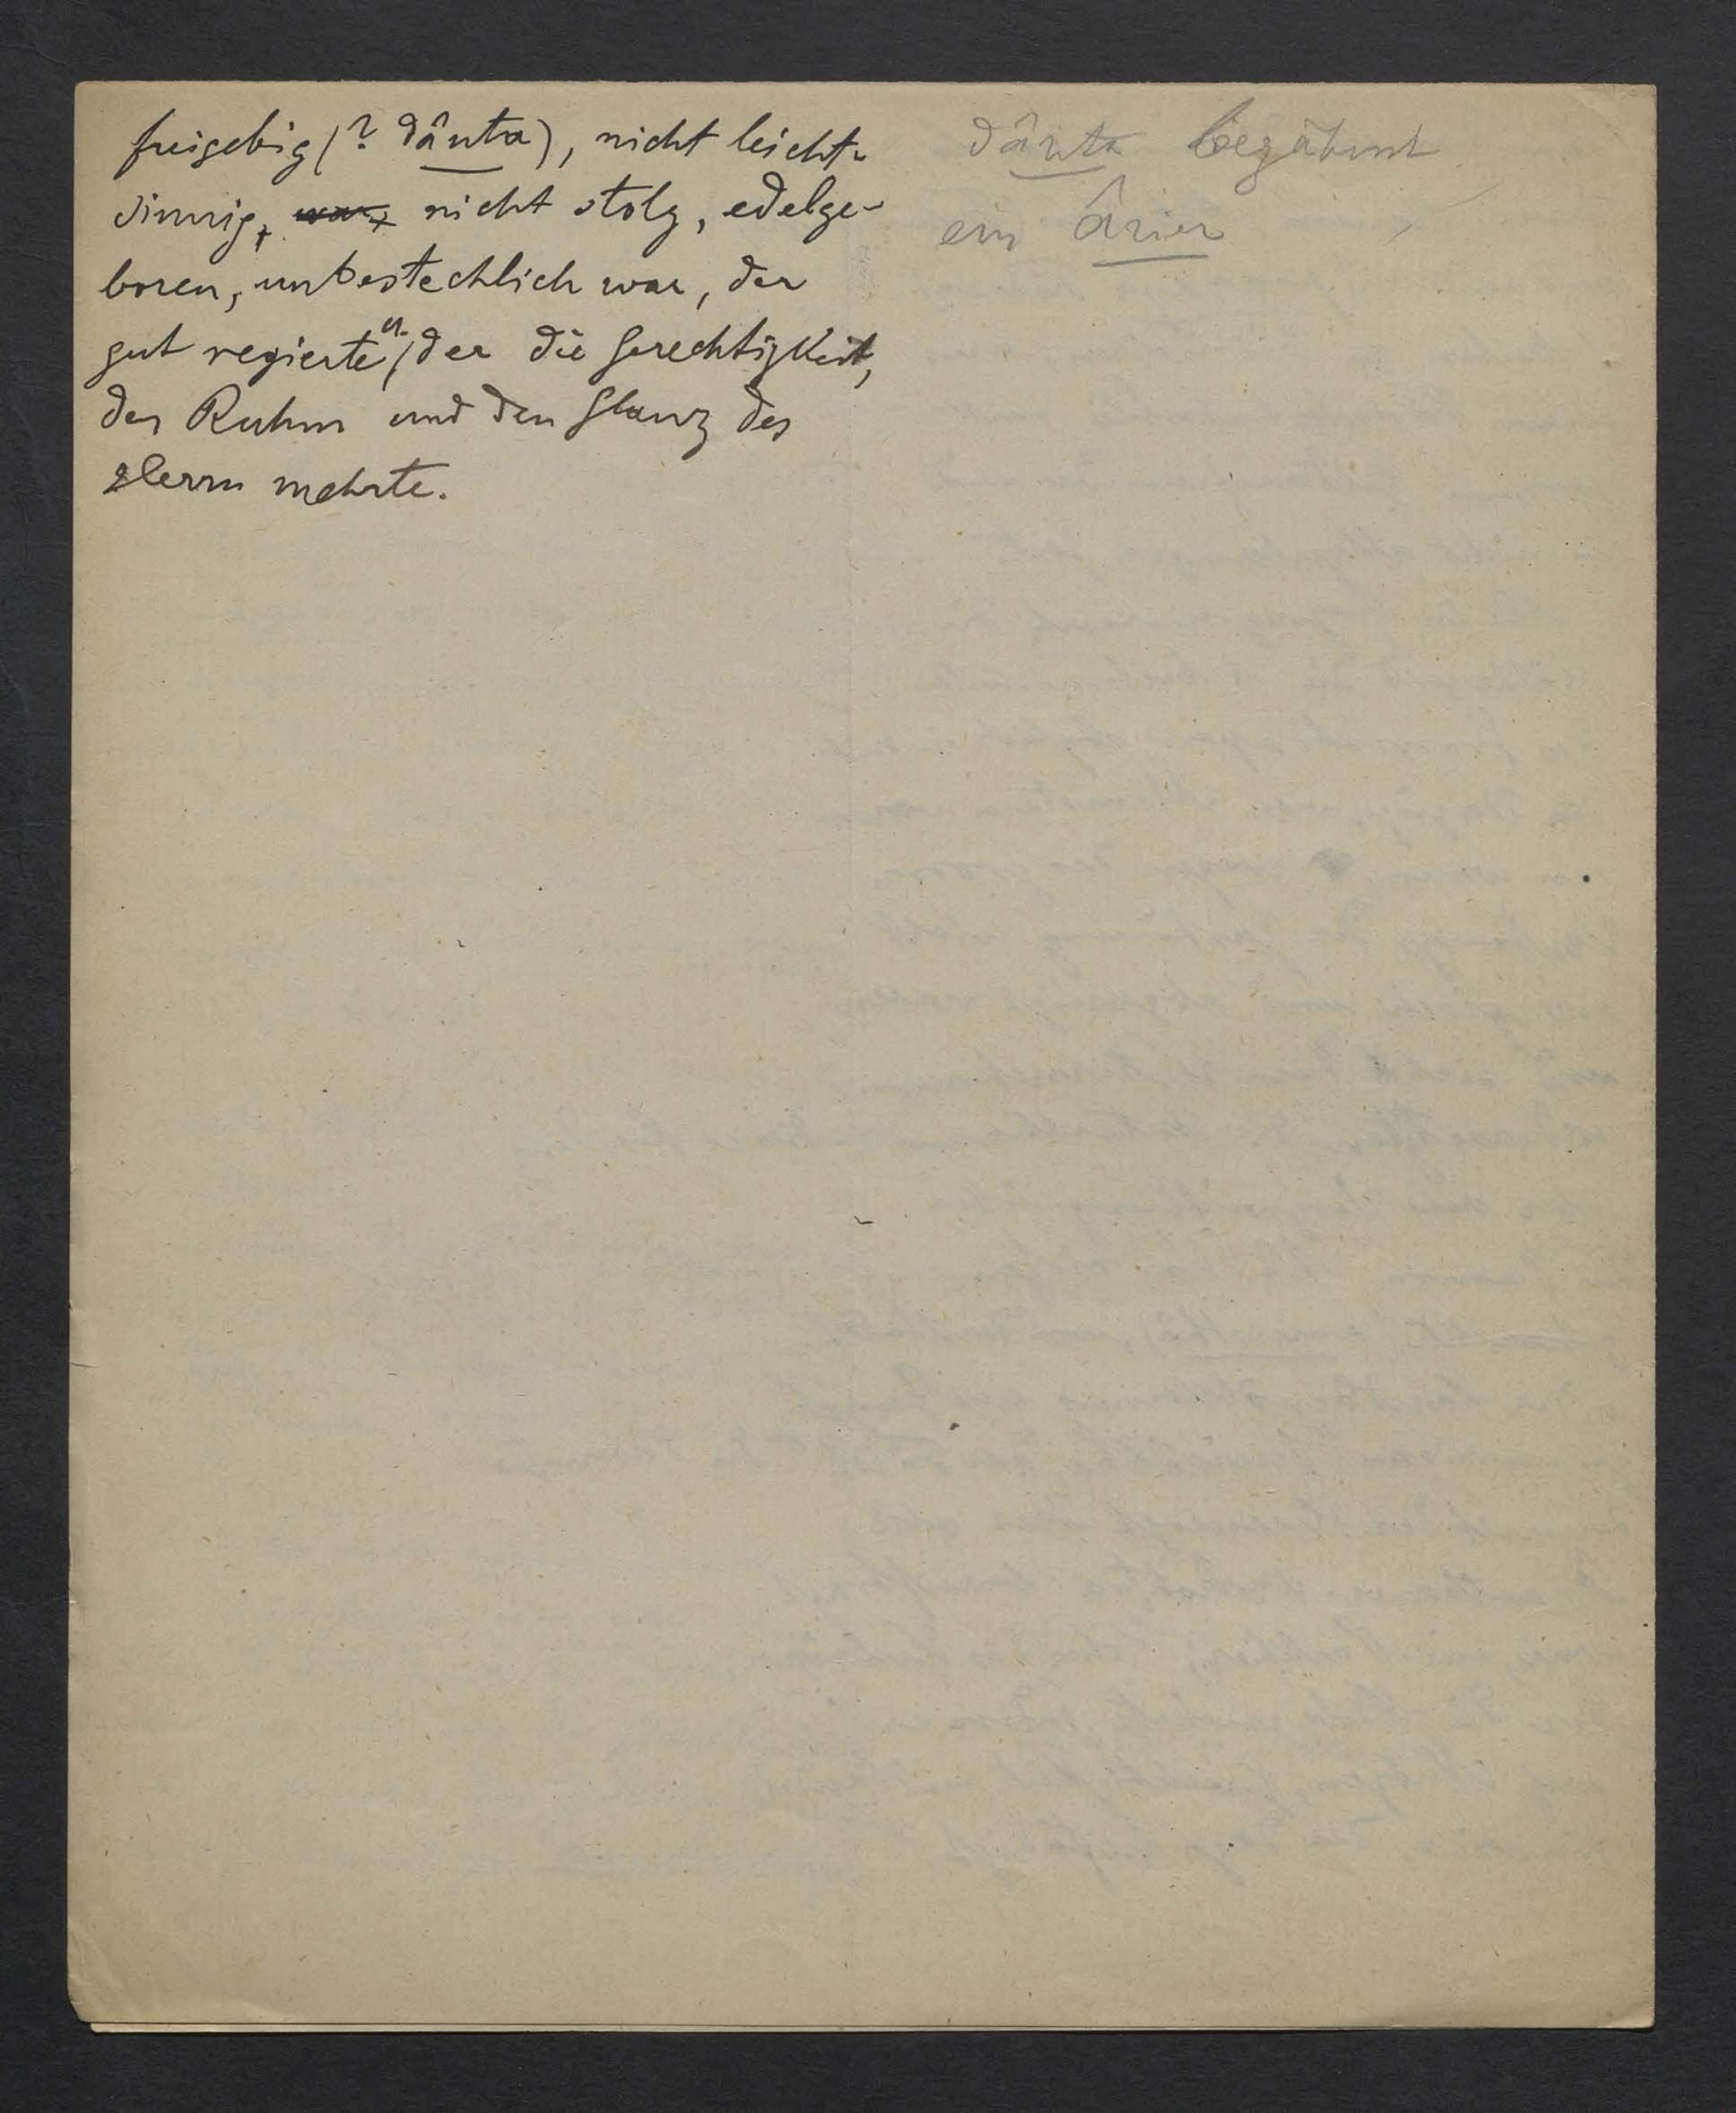 freigebig (? dânta), nicht leicht-
sinnig, war, nicht stolz, edelge-
boren, unbestechlich war, der
gut regierte u. der die Gerechtigkeit,
den Ruhm und den Glanz des
Herrn mehrte.
dânta bezähmt
ein ârier